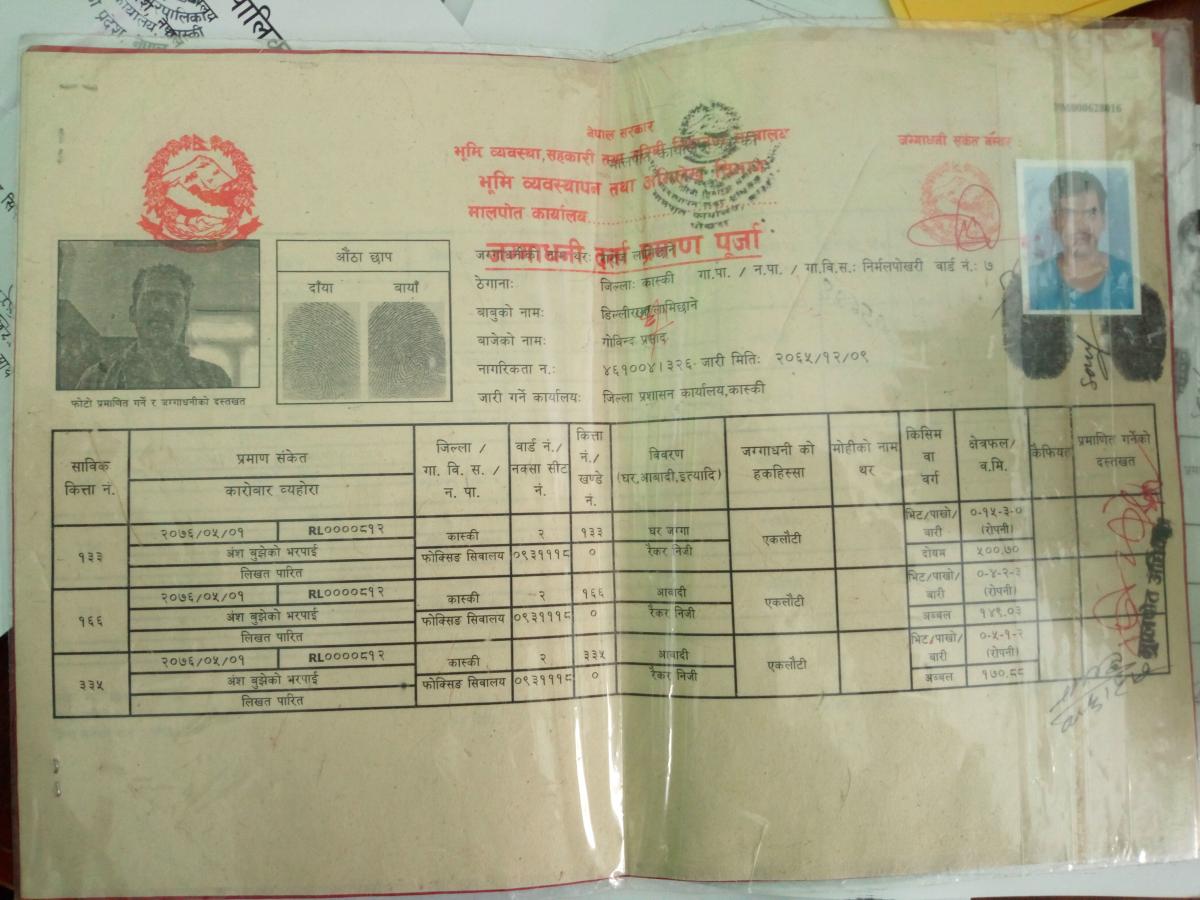 नेपाल सरकार
भूमि व्यवस्था,सहकारी तथा
भूमि व्यवस्थापन तथा अभिलेख विभाग
मालपोत कार्यालय
जग्गाधनी दर्ता प्रमाण पूर्जा
जग्गाधनी संकेत नम्बर
औंठा छाप
दाँया बायाँ
फोटो प्रमाणित गर्ने र जग्गाधनीको दस्तखत
जग्गाधनीको नाम थरः
ठेगानाः जिल्लाः कास्की गा.पा. / न.पा. / गा.वि.स.: निर्मलपोखरी वार्ड नं.: ७
बाबुको नामः
बाजेको नामः गोविन्द प्रसाद
नागरिकता न.: ४६१००४।३२६ जारी मितिः २०६५/१२/०९
जारी गर्ने कार्यालयः जिल्ला प्रशासन कार्यालय,कास्की
साविक कित्ता नं. प्रमाण संकेत कारोवार व्यहोरा जिल्ला / गा. वि. स. / न. पा. वार्ड नं./ नक्सा सीट नं. कित्ता नं./ खण्डे नं. विवरण (घर,आवादी,इत्यादि) जग्गाधनी को हकहिस्सा मोहीको नाम थर किसिम वा वर्ग क्षेत्रफल/ व.मि. कैफियत प्रमाणित गर्नेको दस्तखत
१३३ २०७६/०५/०१ RL००००८१२ कास्की २ १३३ घर जग्गा एकलौटी भिट/पाखो/ बारी ०-१५-३-० (रोपनी)
अंश बुझेको भरपाई फोक्सिङ सिवालय ०९३१११८ ० रैकर निजी दोयम ५००.७०
लिखत पारित
१६६ २०७६/०५/०१ RL००००८१२ कास्की २ १६६ आवादी एकलौटी भिट/पाखो/ बारी ०-४-२-३ (रोपनी)
अंश बुझेको भरपाई फोक्सिङ सिवालय ०९३१११८ ० रैकर निजी अब्बल १४९.०३
लिखत पारित
३३५ २०७६/०५/०१ RL००००८१२ कास्की २ ३३५ आवादी एकलौटी भिट/पाखो/ बारी ०-५-१-२ (रोपनी)
अंश बुझेको भरपाई फोक्सिङ सिवालय ०९३१११८ ० रैकर निजी अब्बल १७०.८८
लिखत पारित